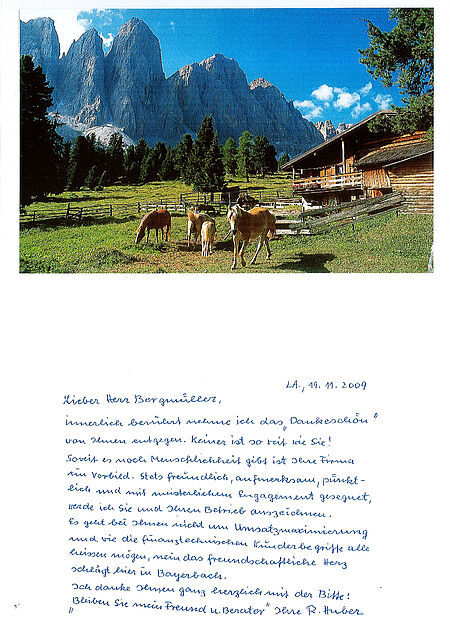 LA., 19.11.2009
Lieber Herr Bergmüller,
innerlich berührt nehme ich das „Dankeschön"
von Ihnen entgegen. Keiner ist so wie Sie!
Soweit es noch Menschlichkeit gibt ist Ihre Firma
ein Vorbild. Stets freundlich, aufmerksam, pünkt-
lich und mit meisterlichem Engagement gesegnet,
werde ich Sie und Ihren Betrieb auszeichnen.
Es geht bei Ihnen nicht um Umsatzmaximierung
und wie die finanztechnischen Kunderbegriffe alle
heissen mögen, nein das freundschaftliche Herz
schlägt hier in Bayerbach.
Ich danke Ihnen ganz herzlich mit der Bitte!
„Bleiben Sie mein Freund u. Berater" Ihre R. Huber